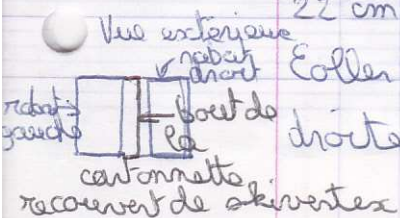 22 cm
Vue extérieure
rabat
droit
Coller
rabat
gauche
bout de
la
droite
cartonnette
recouvert de skivertex